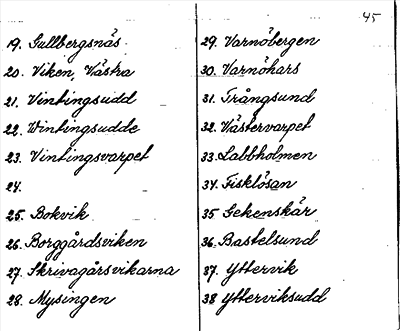 45
19. Gullbergsnäs
20. Viken, Västra
21. Vintingsudd
22. Wintingsudde
23. Vintingsvarpet
24.
25. Bokvik
26. Borggårdsviken
27. Skrivagårsvikarna
28. Mysingen
29. Varnöbergen
30. Varnöhars
31. Trångsund
32. Västervarpet
33. Labbholmen
34. Fisklösan
35 Gekenskär
36. Bastelsund
37. Yttervik
38 Ytterviksudd